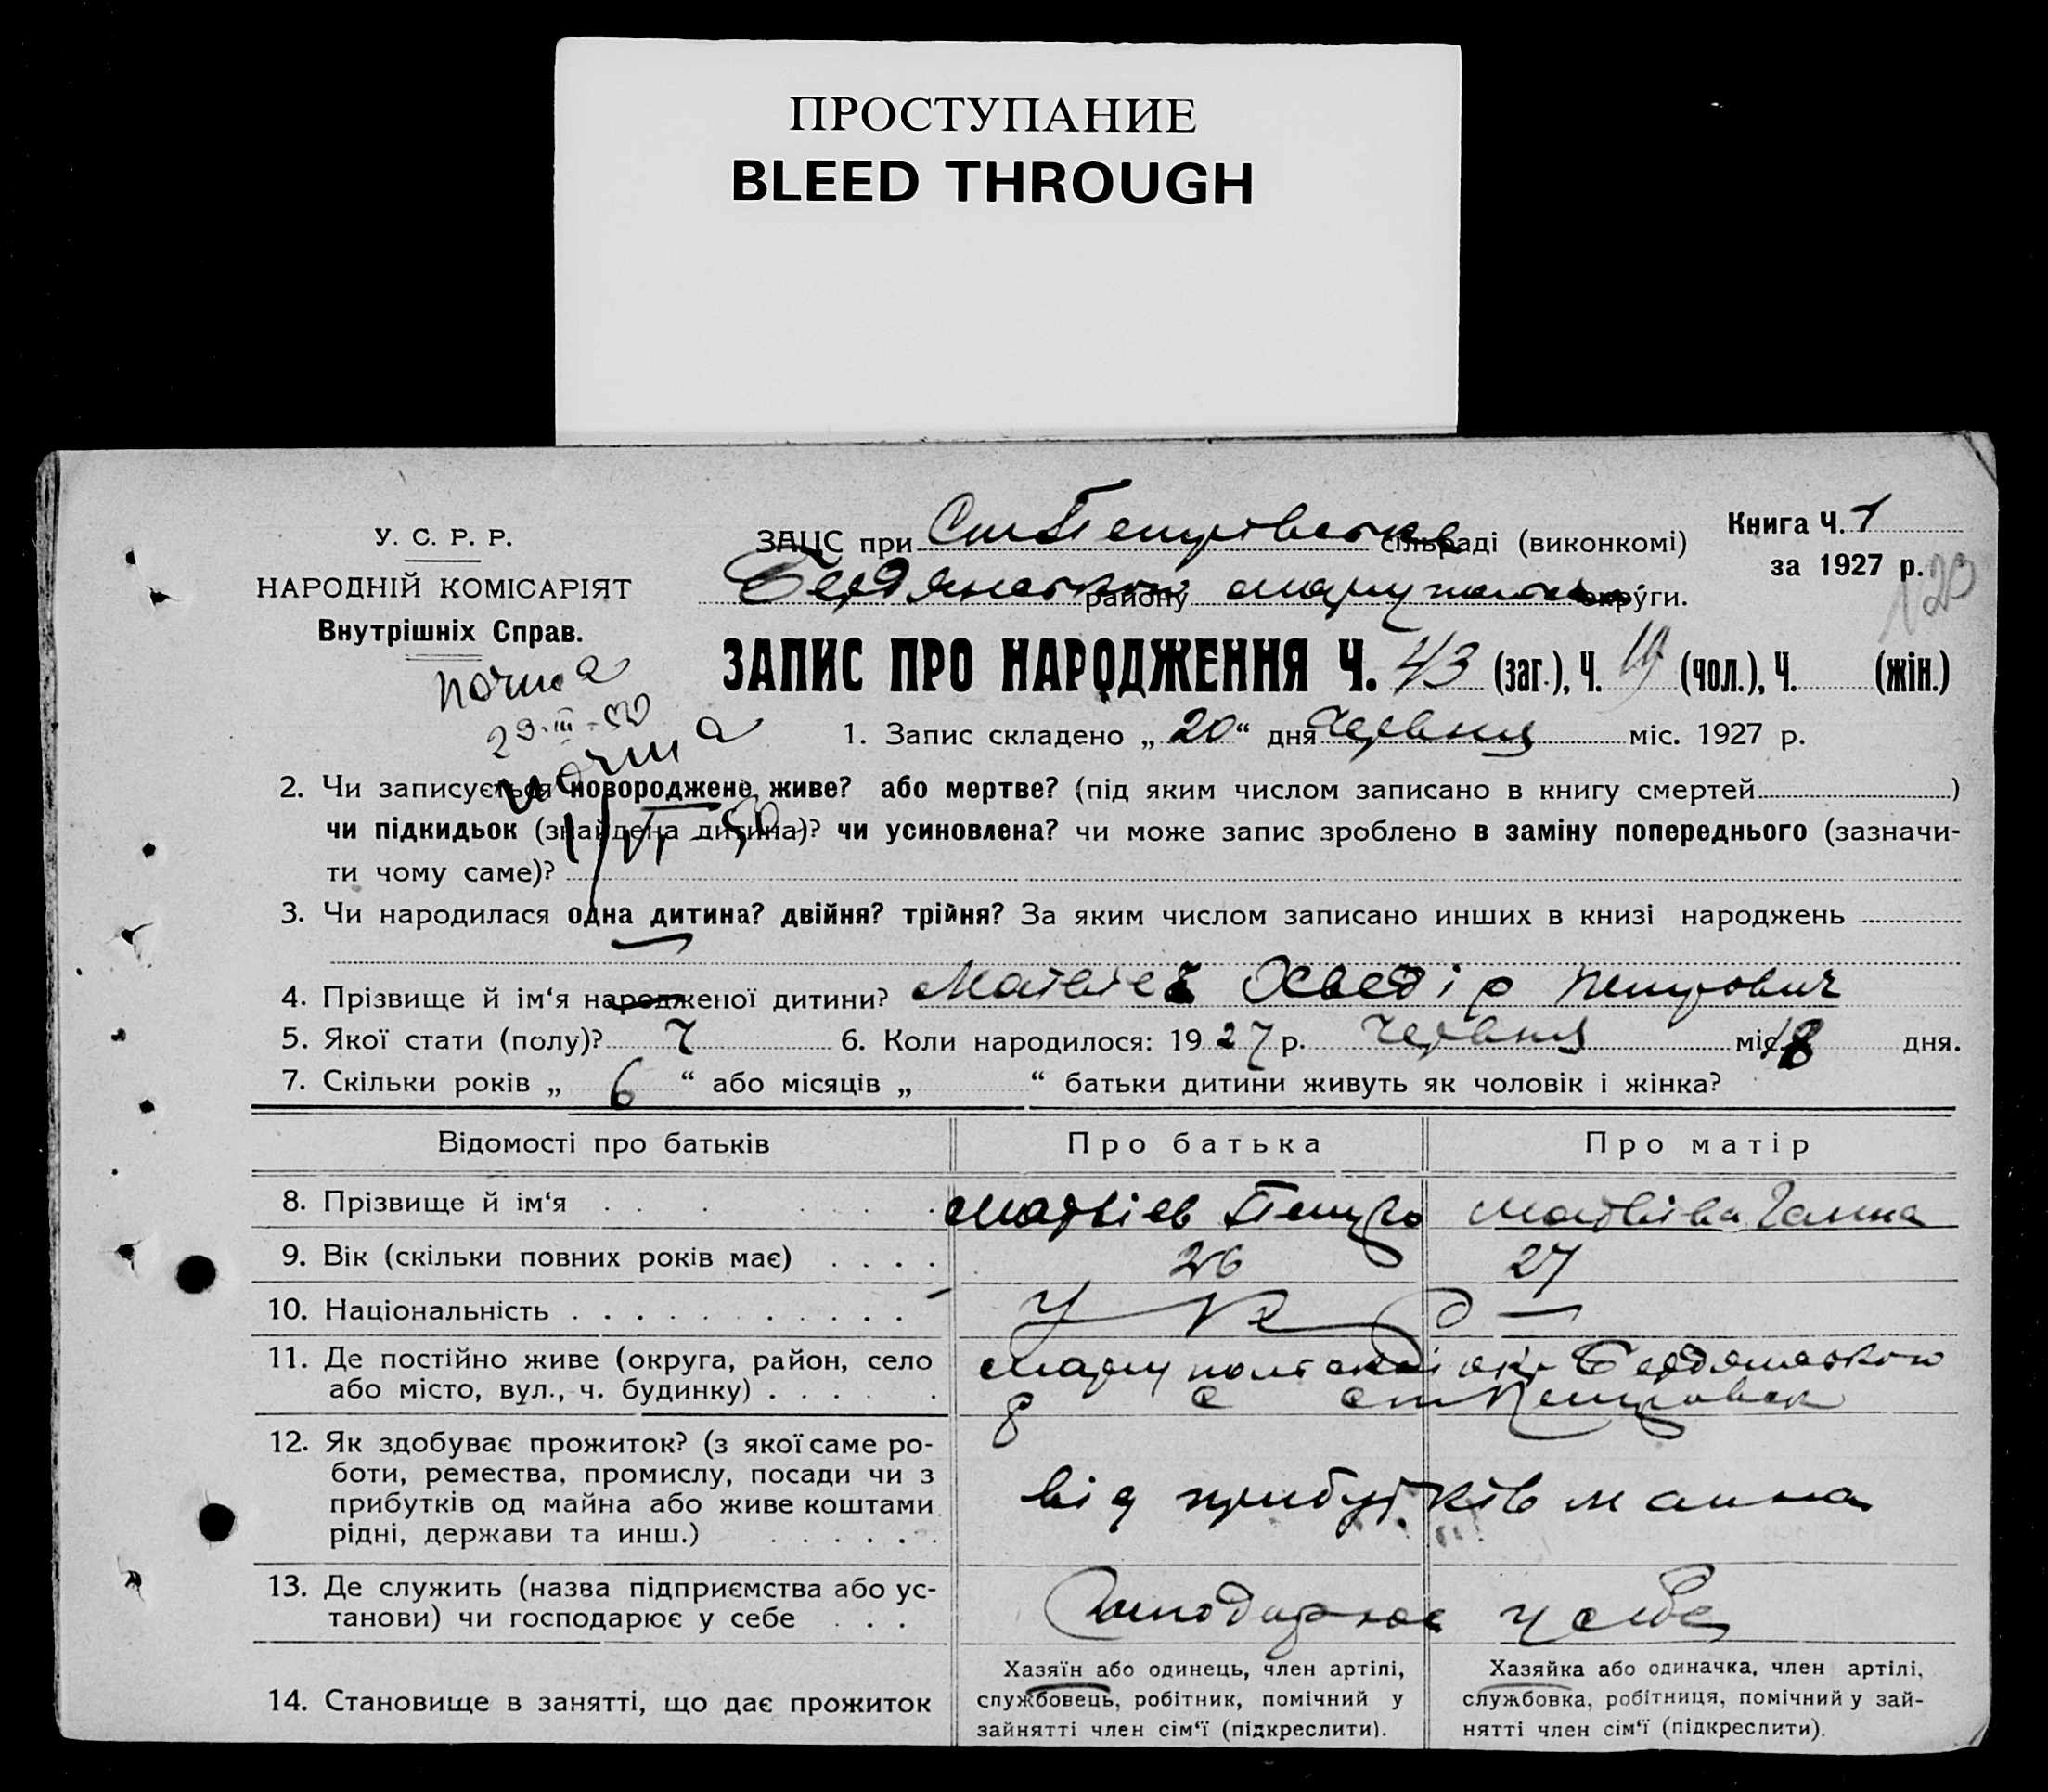 ПРОСТУПАНИЕ
BLEED THROUGH
У. С. Р. Р.
НАРОДНІЙ КОМІСАРІЯТ
Внутрішніх Справ.
ЗАЦС при СтПетрівське сільраді (виконкомі)
Книга Ч. 1
за 1927 р.
Бердянського району Маріупольської округи.
123
ЗАПИС ПРО НАРОДЖЕННЯ Ч. 43 (заг.), Ч. 19 (чол.), Ч. (жін.)
1. Запис складено „ 20 “ дня Червня міс. 1927 р.
2. Чи записується новороджене живе? або мертве? (під яким числом записано в книгу смертей )
чи підкидьок (знайдена дитина)? чи усиновлена? чи може запис зроблено в заміну попереднього (зазначи-
ти чому саме)?
3. Чи народилася одна дитина? двійня? трійня? За яким числом записано инших в книзі народжень
4. Прізвище й ім‘я народженої дитини? Матвієв Петрович
5. Якої стати (полу)? Ч 6. Коли народилося: 1927 р. Червня міс. 18 дня.
7. Скільки років „ 6 “ або місяців „ “ батьки дитини живуть як чоловік і жінка?
Відомості про батьків Про батька Про матір
8. Прізвище й ім‘я Матвієв Петро Матвієва Ганна
9. Вік (скільки повних років має) 26 27
10. Національність Укр
11. Де постійно живе (округа, район, село Маріупольской окр Бердянського
або місто, вул., ч. будинку) р с стПетровск
12. Як здобуває прожиток? (з якої саме ро-
боти, ремества, промислу, посади чи з
прибутків од майна або живе коштами від прибутків маина
рідні, держави та инш.)
13. Де служить (назва підприємства або ус-
танови) чи господарює у себе Господарює у себе
14. Становище в занятті, що дає прожиток
Хазяїн або одинець, член артілі,
службовець, робітник, помічний у
зайнятті член сім‘ї (підкреслити).
Хазяйка або одиначка, член артілі,
службовка, робітниця, помічний у зай-
нятті член сім‘ї (підкреслити).